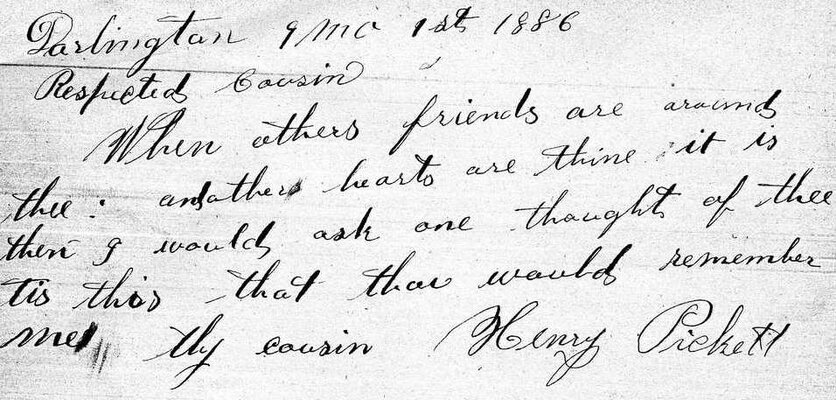 Darlington 9 mo 1st 1886
Respected Cousin
When others friends are around
thee : and others hearts are thine it is
then I would ask one thought of thee
tis this that thou would remember
me thy cousin Henry Pickett